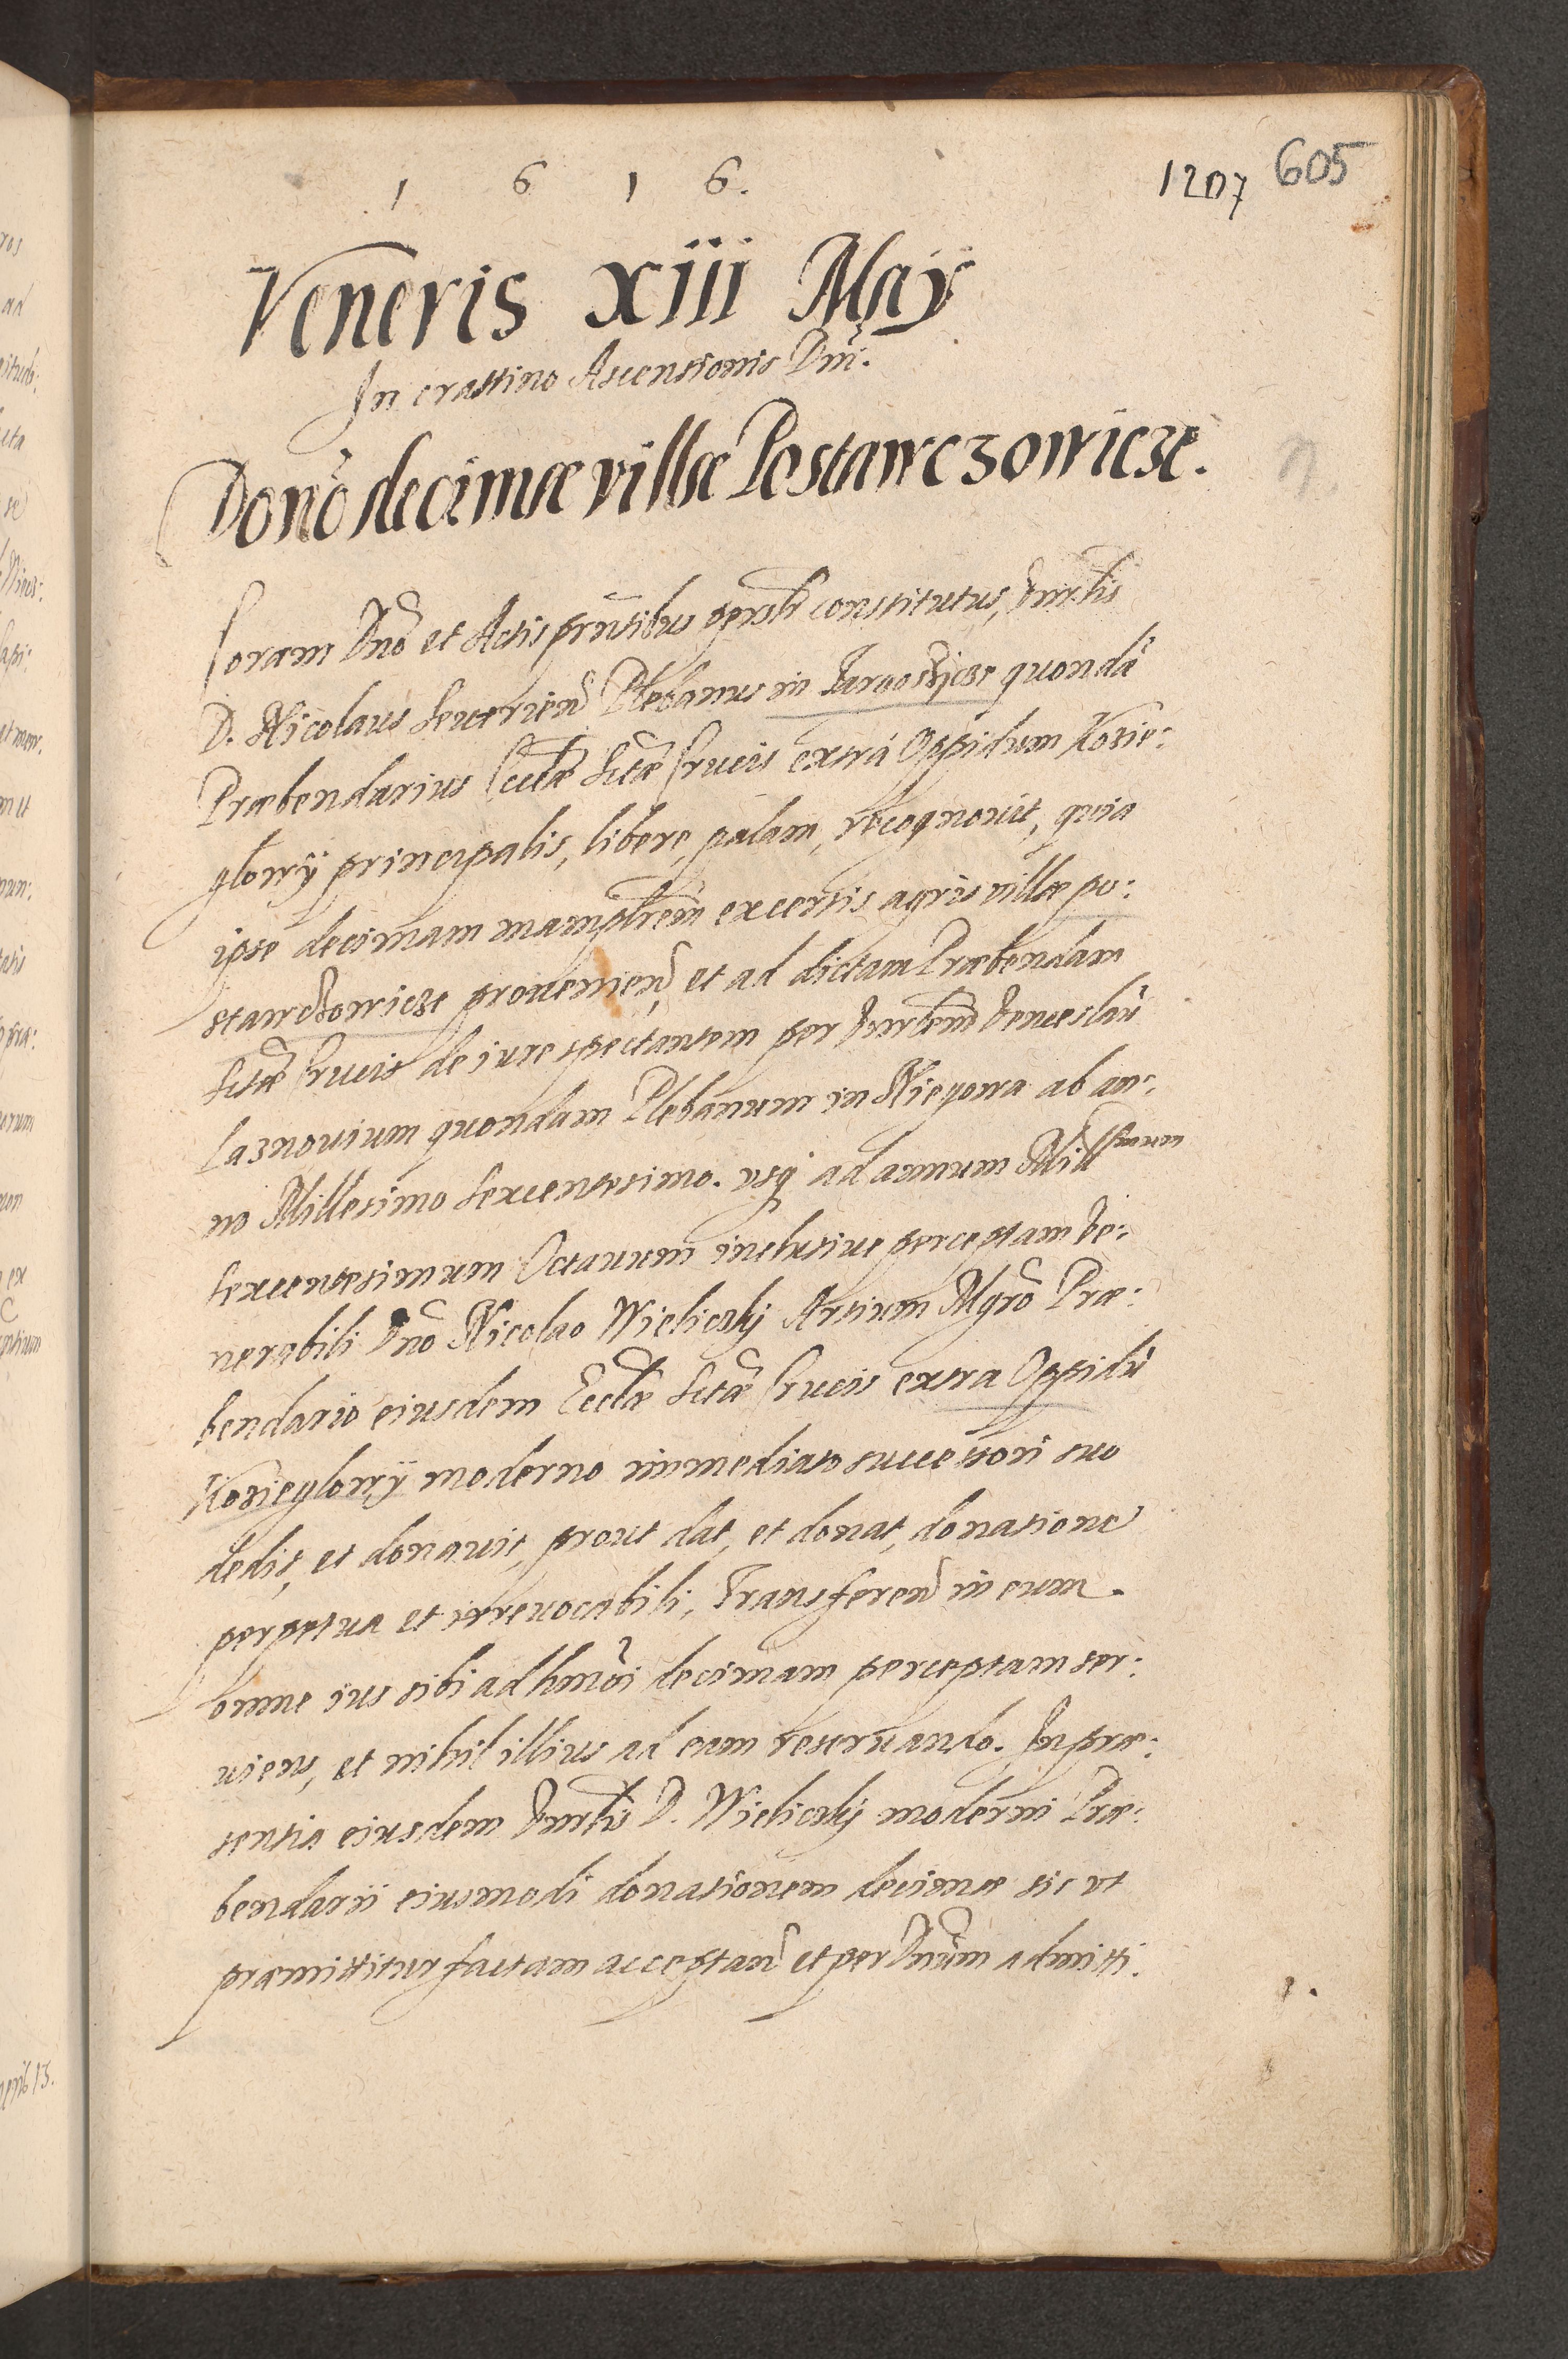 1 6 1 6.
1207 605
Veneris xiii Maÿ
In crastino Ascensionis Dni.
Donõ decimæ villæ Postawczowicze.
Coram Dnõ et Actis pñtibus prsltr constitutus, Vnrlis
D. Nicolaus Seuerien Plebanus in quondã
Præbendarius Ecclæ Sctæ Crucis extrà Oppidum Kozie:
glowÿ principalis, libere, palam, recognouit, quia
ipse decimam manipłrem ex certis agris villæ po:
stawczowicze prouenien, et ad dictam Præbendam
Sctæ Crucis de iure spectantem per Vnrlem Venceslaũ
Lasnouium quondam Plebanum in Niegowa ab an:
no Millesimo Sexcentesimo. vsq ad annum Mill simum
Sexcentesimum Octauum inclusiue perceptam Ve:
nerabili Dno Nicolao Wieliczky Artium Mgrõ Præ:
bendario eiusdem Ecclæ Sctæ Crucis extra Oppidũ
Kozieglowÿ moderno immediato successori suo
dedit, et donauit, prout dat, et donat, donatione
perpetua et irreuocabili, Transferen in eum
omne ius sibi ad hmõi decimam perceptam ser:
uiens, et nihil illius ad eam reseruando. In præ:
sentia eiusdem Vnrlis D. Wieliczky moderni Præ:
bendarii eiusmodi donationem decimæ sic vt
præmittitur factam acceptan et per Dnũm admitti.